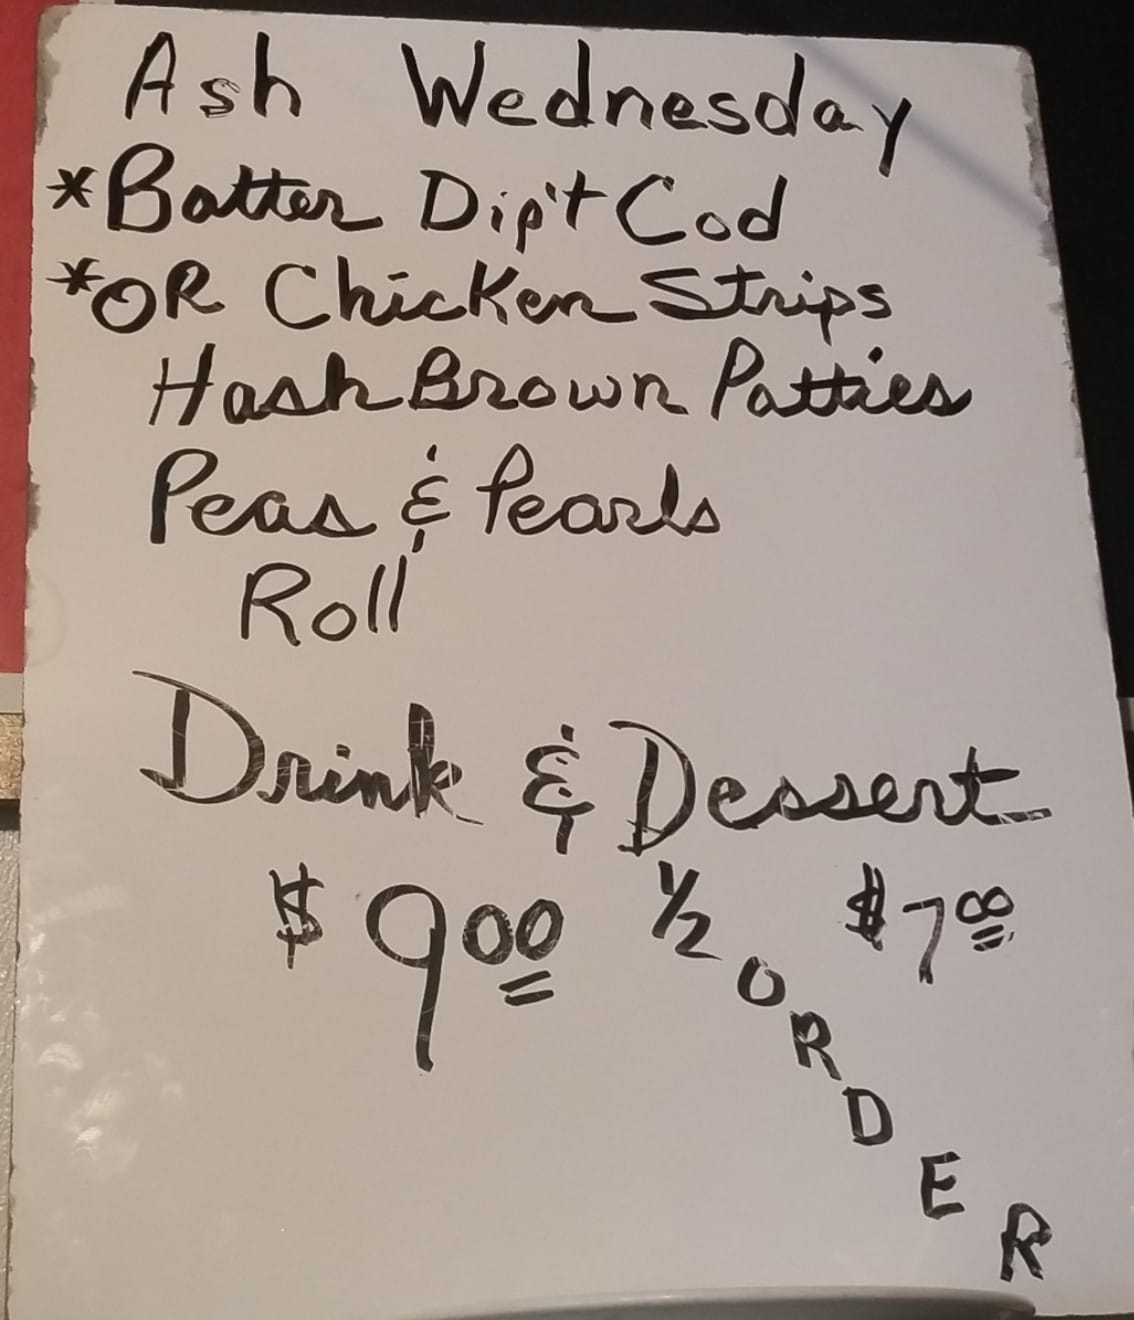 Ash Wednesday
*Batter Dip't Cod
*OR Chicken Strips
Hash Brown Patties
Peas & Pearls
Roll
Drink & Dessert
$9.00 1/2 ORDER $7.00